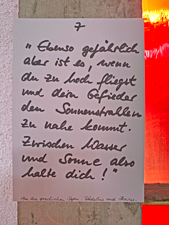 7
"Ebenso gefährlich
aber ist es, wenn
du zu hoch fliegst
und dein Gefieder
den Sonnenstrahlen
zu nahe kommt.
Zwischen Wasser
und Sonne also
halte dich!"